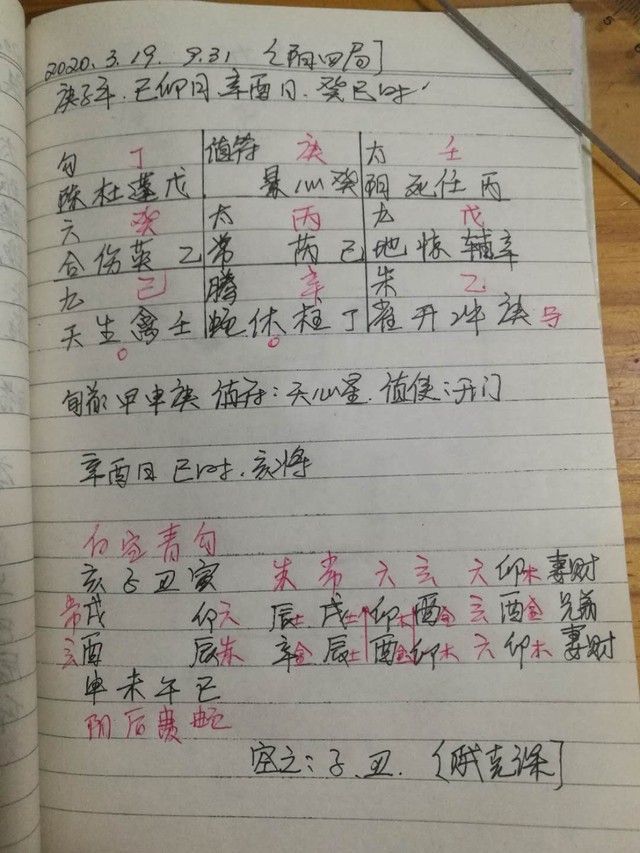 2020.3.19. 9.31 (阳四局]
庚子年.己卯月.辛酉日.癸巳时.
勾 丁 值符 庚 太 壬
陈杜蓬戊 景心癸 阴死任丙
六 癸 太 丙 九 戊
合伤英乙 常 芮己 地惊辅辛
九 己 腾 辛 朱 乙
天生禽壬 蛇休柱丁 雀开冲庚马
旬首:甲申庚 值符:天心星.值使:开门
辛酉日 巳时.亥将
白空青勾
亥子丑寅 朱常六玄 六卯木妻财
常戌 卯六 辰土戌土卯木酉金 玄酉金兄弟
玄酉 辰朱 辛金辰土酉金卯木 六卯木妻财
申未午巳
阴后贵蛇
空亡:子.丑. (贼克课]